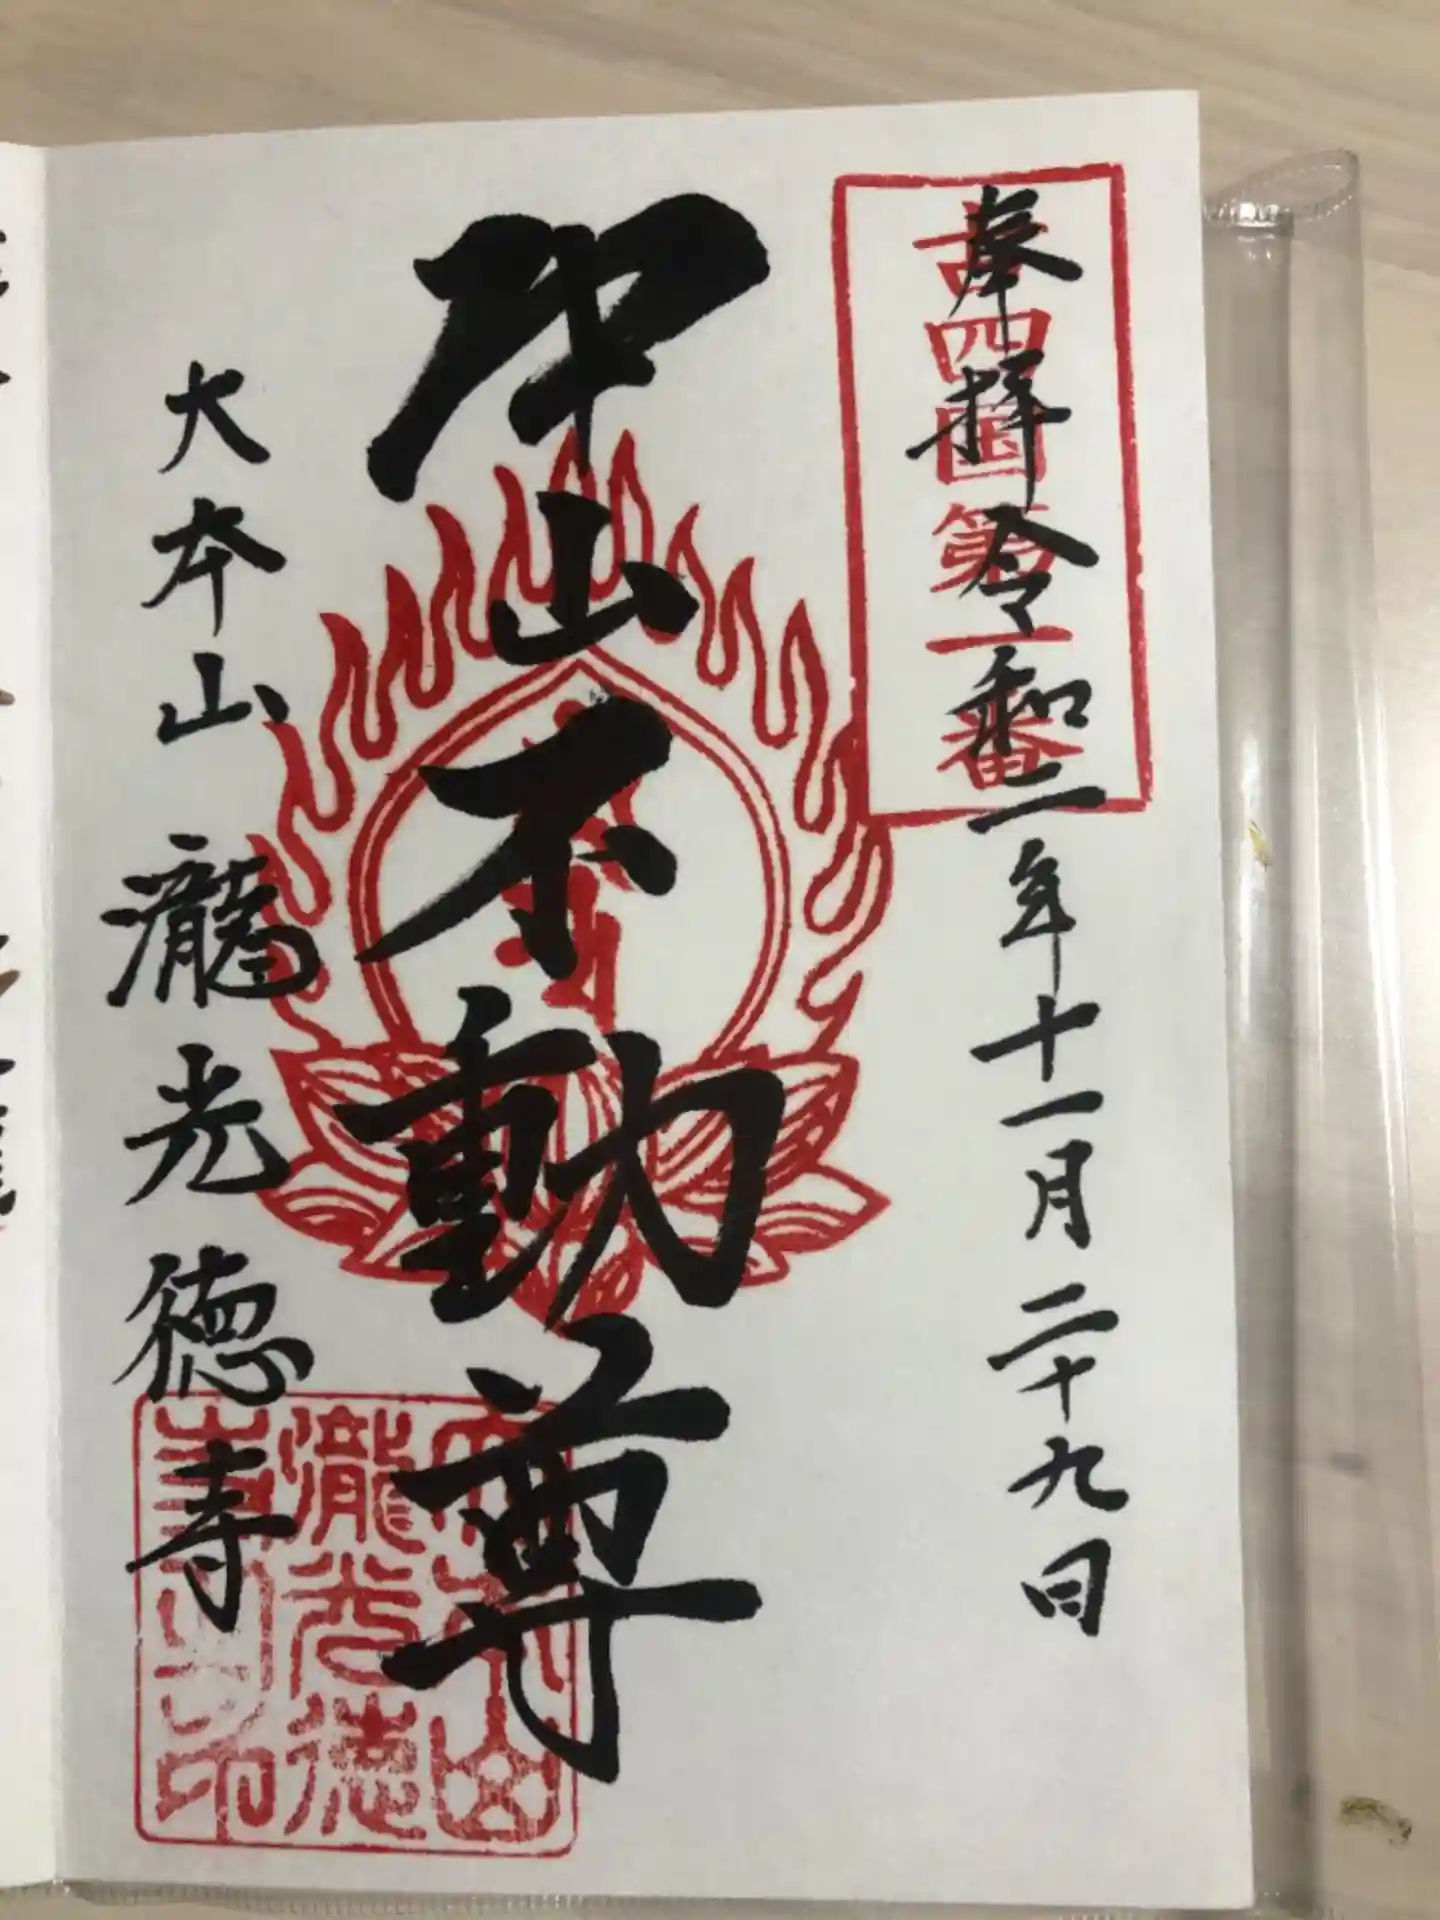 四国第一番
奉拝 令和二年十一月二十九日
中山不動尊
大本山 瀧光徳寺
大本山
瀧光徳
寺之印